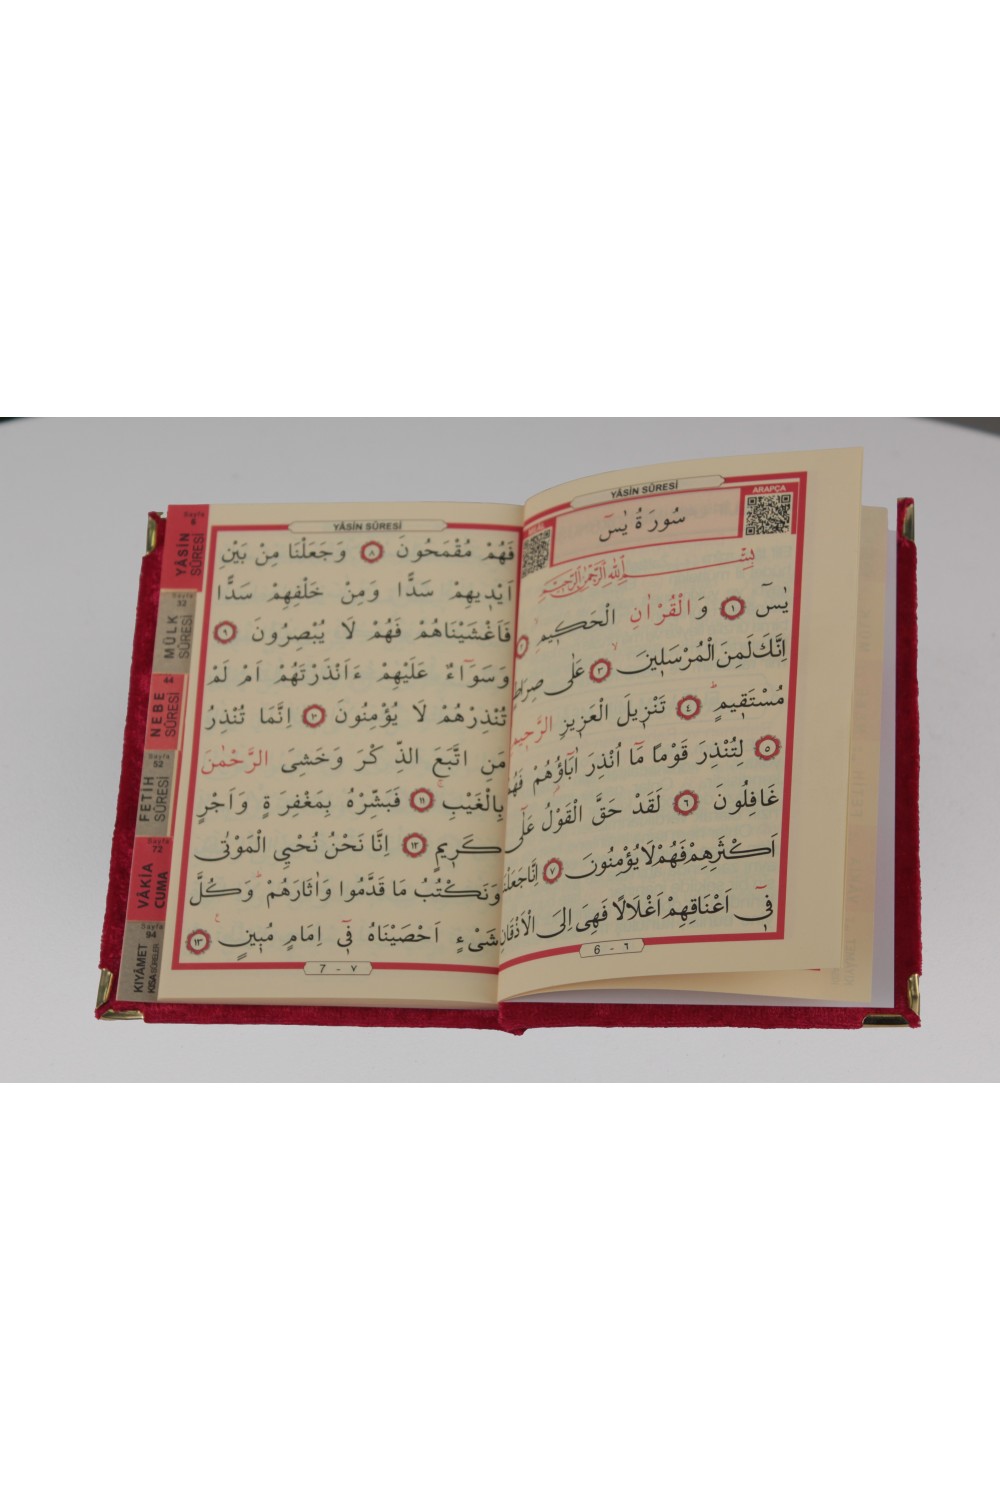 YÂSİN SÛRESİ
ARAPÇA
سُورَةُ يٰسٓ
بِسْمِ اللّٰهِ الرَّحْمٰنِ الرَّحِيمِ
يٰسٓ ١ وَالْقُرْاٰنِ الْحَكٖيمِ ٢
اِنَّكَ لَمِنَ الْمُرْسَلٖينَ ٣ عَلٰى صِرَاطٍ
مُسْتَقٖيمٍ ٤ تَنْزٖيلَ الْعَزٖيزِ الرَّحٖيمِ
٥ لِتُنْذِرَ قَوْمًا مَٓا اُنْذِرَ اٰبَٓاؤُ۬هُمْ فَهُمْ
غَافِلُونَ ٦ لَقَدْ حَقَّ الْقَوْلُ عَلٰٓى
اَكْثَرِهِمْ فَهُمْ لَا يُؤْمِنُونَ ٧ اِنَّا جَعَلْنَا
فٖٓى اَعْنَاقِهِمْ اَغْلَالًا فَهِىَ اِلَى الْاَذْقَانِ
6 - ٦
YÂSİN SÛRESİ
فَهُمْ مُقْمَحُونَ ٨ وَجَعَلْنَا مِنْ بَيْنِ
اَيْدٖيهِمْ سَدًّا وَمِنْ خَلْفِهِمْ سَدًّا
فَاَغْشَيْنَاهُمْ فَهُمْ لَا يُبْصِرُونَ ٩
وَسَوَٓاءٌ عَلَيْهِمْ ءَاَنْذَرْتَهُمْ اَمْ لَمْ
تُنْذِرْهُمْ لَا يُؤْمِنُونَ ١٠ اِنَّمَا تُنْذِرُ
مَنِ اتَّبَعَ الذِّكْرَ وَخَشِىَ الرَّحْمٰنَ
بِالْغَيْبِ ١١ فَبَشِّرْهُ بِمَغْفِرَةٍ وَاَجْرٍ
كَرٖيمٍ ١٢ اِنَّا نَحْنُ نُحْيِى الْمَوْتٰى
وَنَكْتُبُ مَا قَدَّمُوا وَاٰثَارَهُمْ وَكُلَّ
شَىْءٍ اَحْصَيْنَاهُ فٖٓى اِمَامٍ مُبٖينٍ ١٣
7 - ٧
Sayfa
6
YÂSİN
SÛRESİ
Sayfa
32
MÜLK
SÛRESİ
44
NEBE
SÛRESİ
Sayfa
52
FETİH
SÛRESİ
Sayfa
72
VÂKIA
CUMA
Sayfa
94
KIYÂMET
KISA SÛRELER